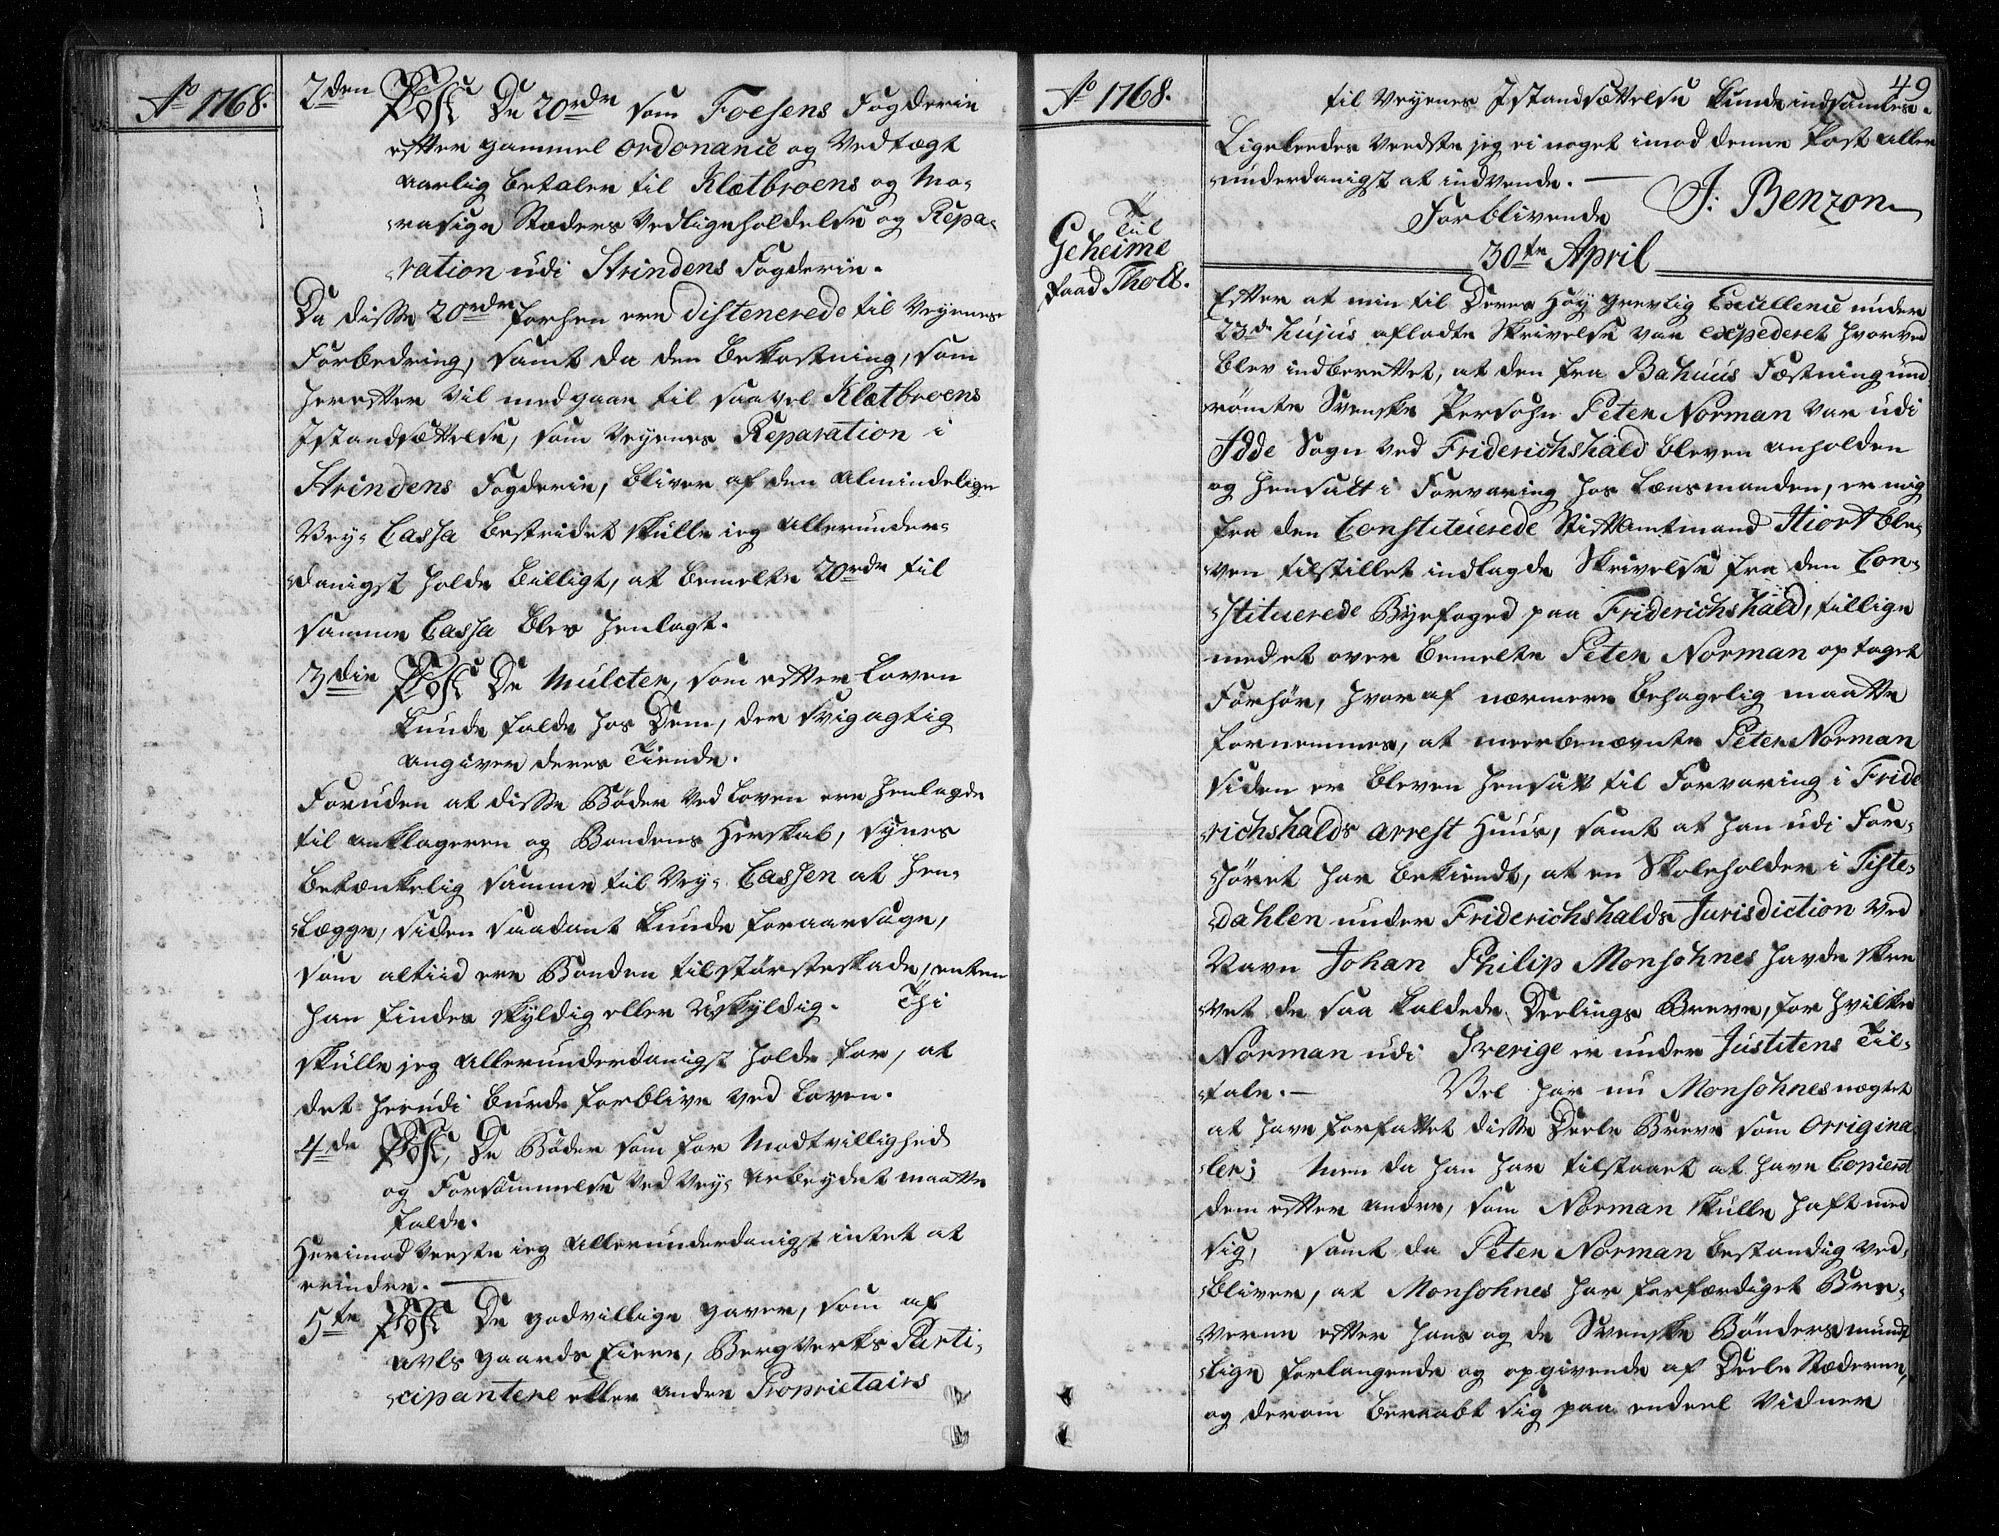 Aº 1768.
2den Post De 20rdr som Foesens Fogderie
efter gammel ordonance og Vedtægt
aarlig betaler til Klætbroens og Mo-
rasige Stæders Vedligeholdelse og Repa-
ration udi Strindens Fogderie.
Da disse 20rdr forhen ere distenerede til Veyenes
Forbedring, samt da den Bekostning, som
herefter vil medgaae til saavel Klætbroens
Istandsættelse, som Veyenes Reparation i
Strindens Fogderie, bliver af den almindelige
Vey-Cassa bestridet skulle ieg allerunder-
danigst holde billigt, at bemelte 20rdr til
samme Cassa blev henlagt.
3die Post De Mulcter, som efter Loven
kunde falde hos Dem, der svigagtig
angiver deres Tiende.
Foruden at disse Bøder ved Loven ere henlagde
til anklageren og Bondens Herskab, synes
betænkelig samme til Vey-Cassen at hen-
lægge, siden saadant kunde foraarsage,
som altiid ere Bonden til største skade, enten
han findes skyldig eller Uskyldig. Thi
skulle jeg allerunderdanigst holde for, at
det herudi burde forblive ved Loven.
4de Post, De Bøder som for Modtvillighed
og Forsømmelse ved Vey-Arbeydet maatte
falde.
Herimod veeste ieg allerunderdanigst intet at
erindre.
5te Post De godvillige gaver, som af
avls gaards Eiere, Bergverks Parti-
cipantere eller andre Proprietairs
Aº 1768.
49
til Veyenes Istandsættelse kunde indsamles.
Ligeleedes veedste jeg ei noget imod denne Post aller
underdanigst at indvende.
Forblivende J: Benzon
30te April
Til
Geheime
Raad Thott.
Efter at min til Deres Høy Grevlig Excellence under
23de hujus afladte Skrivelse var expederet hvorved
blev indberettet, at den fra Bahuus Fæstning und
rømte Svenske Persohn Peter Norman var udi
Idde Sogn ved Friderichshald bleven anholden
og hensatt i Forvaring hos Lænsmanden, er mig
fra den Constituerede Stiftamtmand Hiort ble-
ven tilstillet indlagde Skrivelse fra den Con-
stituerede Byefoged paa Friderichshald, tillige
med et over bemelte Peter Norman optaget
Forhør, hvoraf nærmere behagelig maatte
fornemmes, at meerbenævnte Peter Norman
siden er bleven hensatt til Forvaring i Fride
richshalds Arrest Huus, samt at han udi For-
høret har bekiendt, at en Skoleholder i Tiste-
dahlen under Friderichshalds Jurisdiction ved
Navn Johan Philip Monsohnes havde skre
vet de saa kaldede Deelings Breve, for hvilke
Norman udi Sverige er under Justitens Til-
tale. Vel har nu Monsohnes nægtet
at have forfattet disse Deele Breve som Origina
ler; Men da han har tilstaaet at have Copieret
dem efter andre, som Norman skulle haft med
sig, samt da Peter Norman bestandig ved-
bliver, at Monsohnes har forfærdiget Bre-
vene efter hans og de Svenske Bønders mundt
lige forlangende og opgivende af Deele Stæderne,
og derom beraabt sig paa endeel Vidner